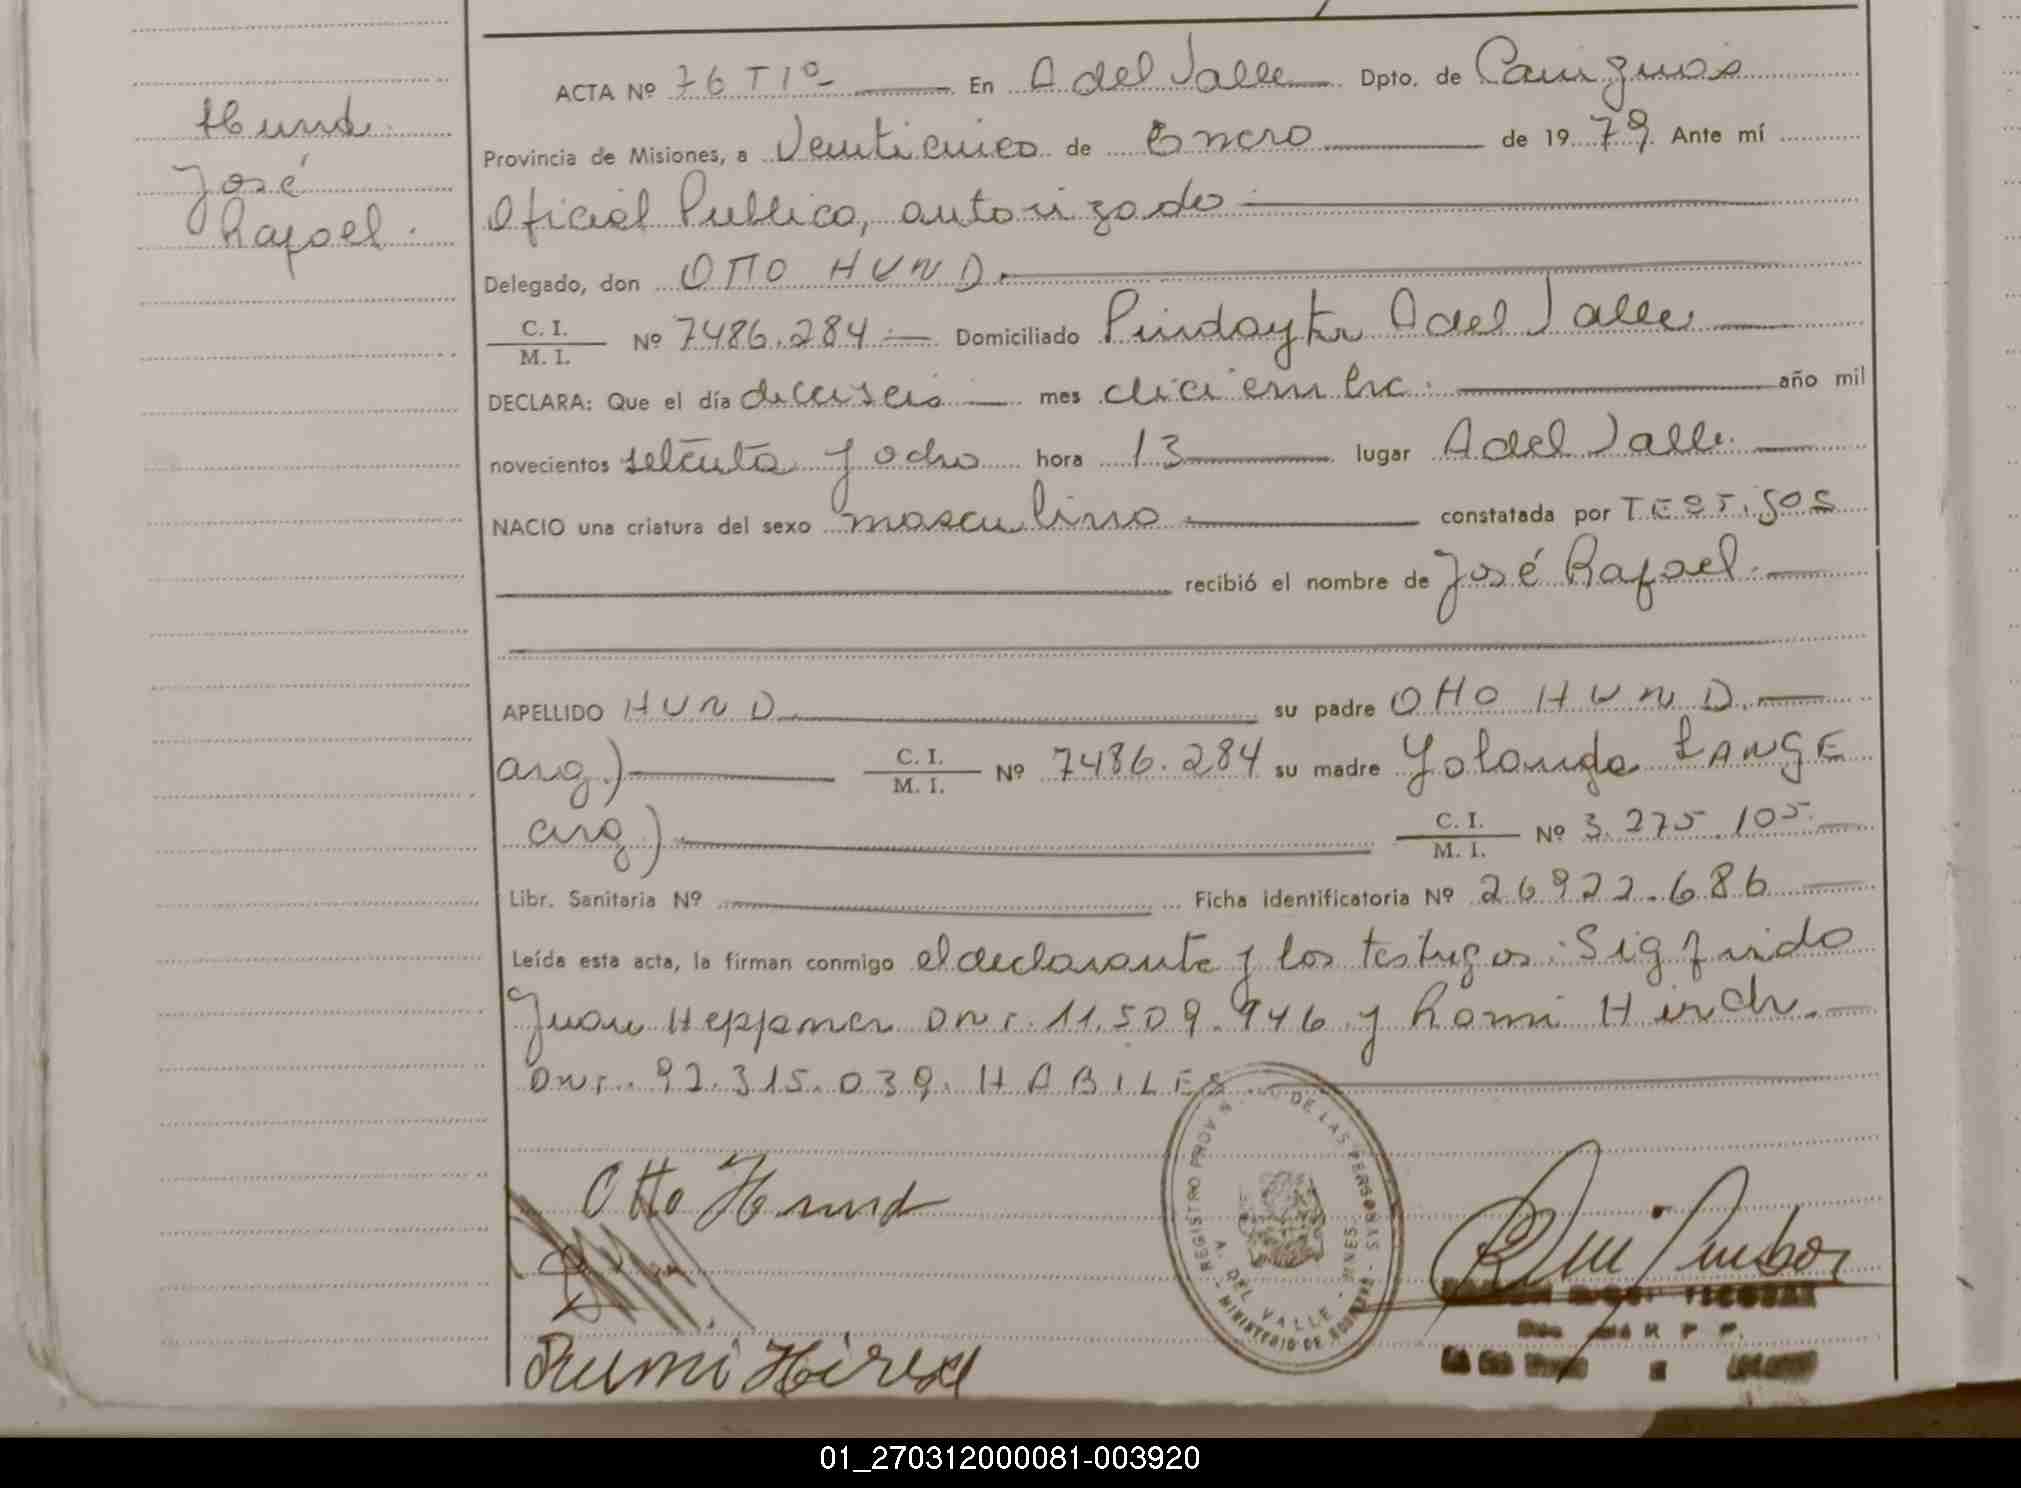 Hund
José
Rafael.
ACTA Nº 76 T Iº En A del Valle Dpto. de Cainguás
Provincia de Misiones, a Veinticinco de Enero de 1979. Ante mí
Oficial Publico, autorizado
Delegado, don OTTO HUND.
C. I.
M. I. Nº 7486.284 Domiciliado Pindayty A del Valle
DECLARA: Que el día dieciseis mes diciembre. año mil
novecientos setenta y ocho hora 13 lugar A del Valle.
NACIO una criatura del sexo masculino constatada por TESTIGOS
recibió el nombre de José Rafael.
APELLIDO HUND su padre OTTO HUND.
arg.) C. I.
M. I. Nº 7486.284 su madre Yolanda LANGE
arg) C. I.
M. I. Nº 3.275.105.
Libr. Sanitaria Nº Ficha identificatoria Nº 26922.686
Leída esta acta, la firman conmigo el declarante y los testigos: Sigfrido
Juan Heppner DNI. 11.509.946 y Romi Hirch.
DNI. 92.315.039. HABILES
Otto Hund
REGISTRO PROV DE LAS PERSONAS
A. DEL VALLE - MNES.
MINISTERIO DE GOBIERNO
Rumi Hirch
01_270312000081-003920